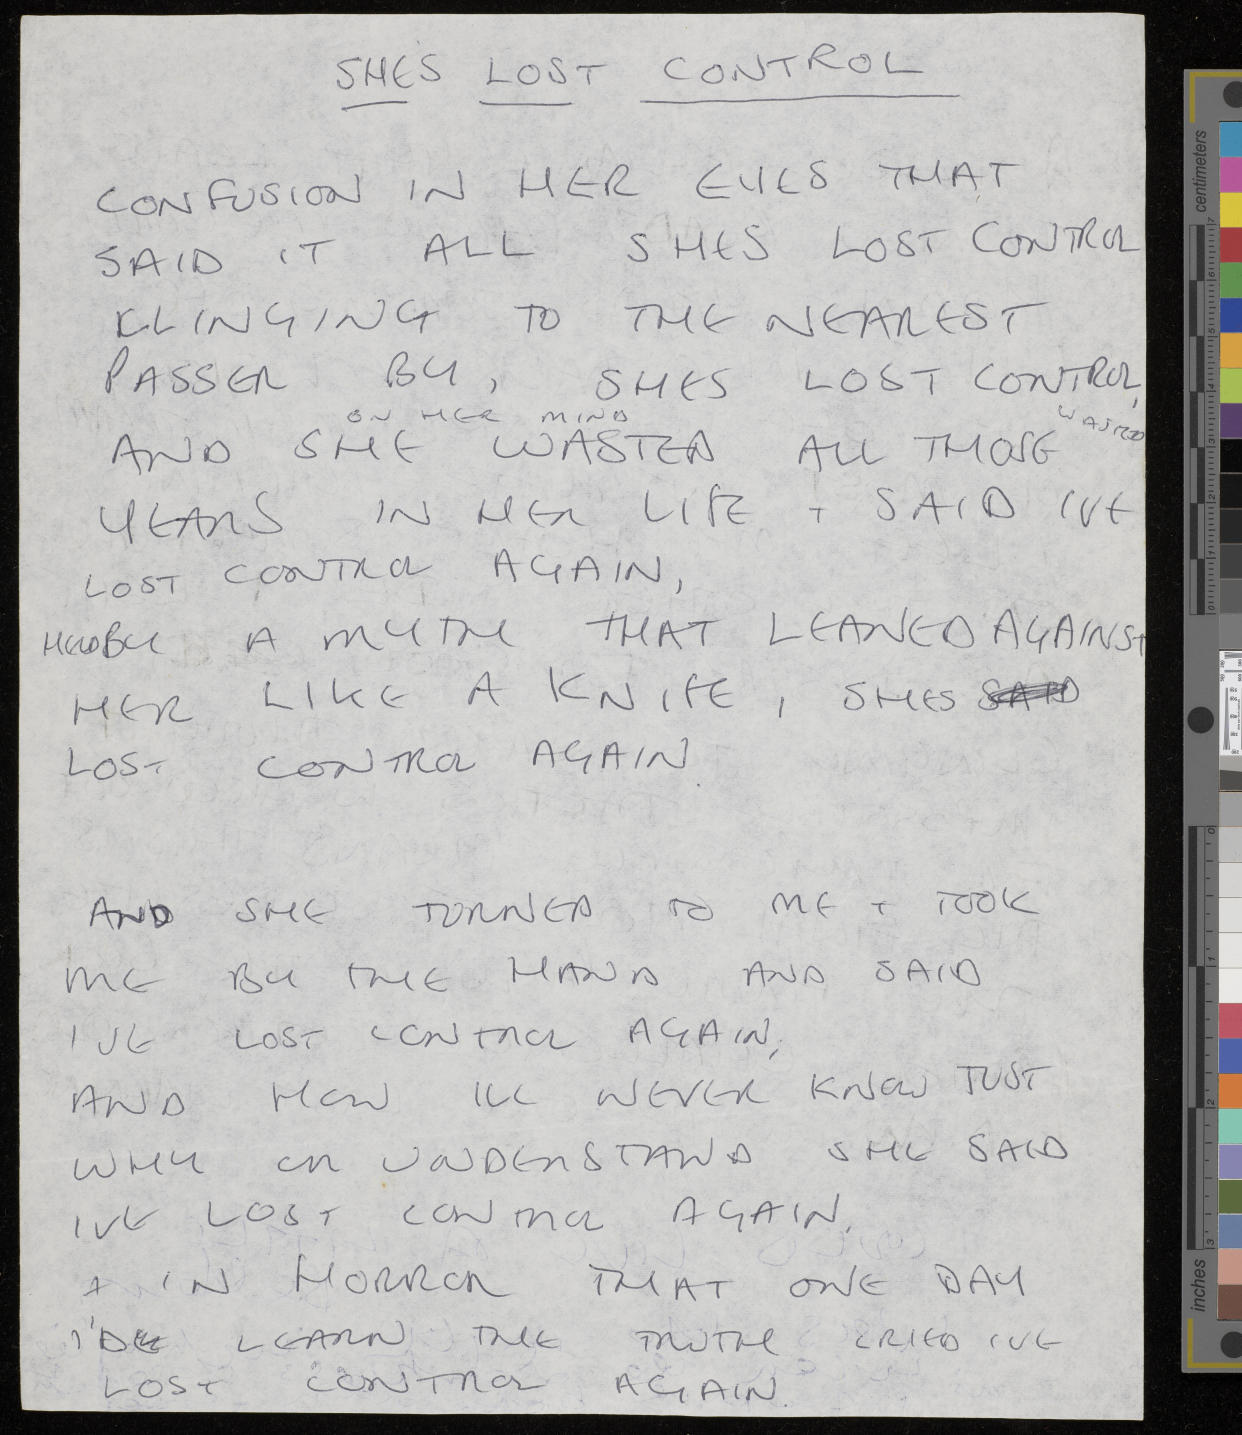 SHES LOST CONTROL
CONFUSION IN HER EYES THAT
SAID IT ALL SHES LOST CONTROL
KLINGING TO THE NEAREST
PASSER BY, SHES LOST CONTROL,
ON HER MIND WASTED
AND SHE WASTED ALL THOSE
YEARS IN HER LIFE + SAID IVE
LOST CONTROL AGAIN,
HELD BY A MYTH THAT LEANED AGAINST
HER LIKE A KNIFE, SHES SAID
LOST CONTROL AGAIN.
AND SHE TURNED TO ME + TOOK
ME BY THE HAND AND SAID
IVE LOST CONTROL AGAIN,
AND HOW ILL NEVER KNOW JUST
WHY OR UNDERSTAND SHE SAID
IVE LOST CONTROL AGAIN.
+ IN HORROR THAT ONE DAY
I'DE LEARN THE TRUTH CRIED IVE
LOST CONTROL AGAIN.
centimeters
inches